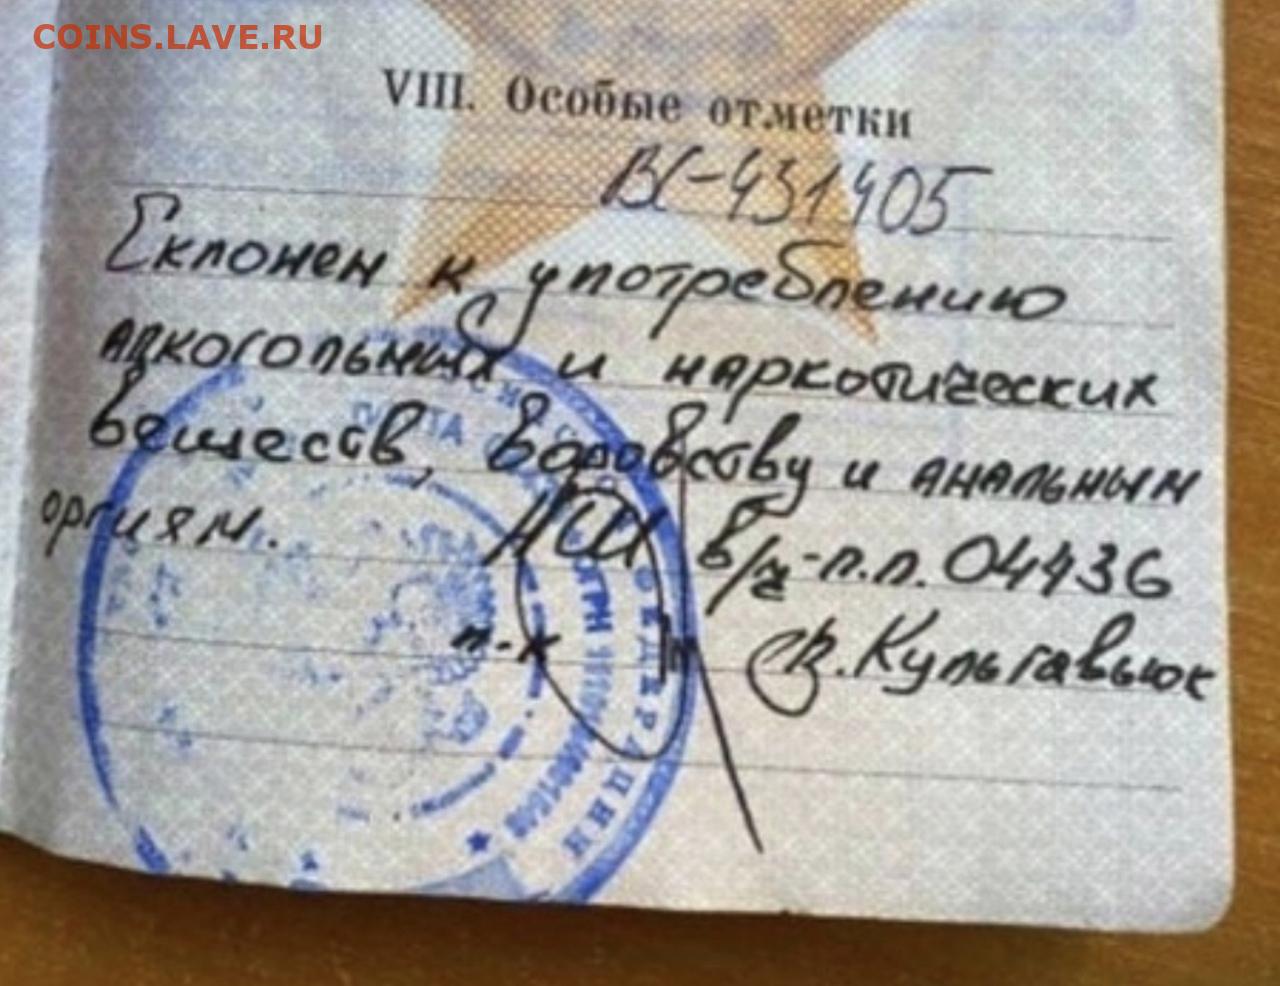 COINS.LAVE.RU
VIII. Особые отметки
ВС-431405
Склонен к употреблению
алкогольных и наркотических
веществ, воровству и анальным
оргиям. НШ в/ч-п.п. 04436
п-к В. Культавьюк
ФЕДЕРАЦИИ